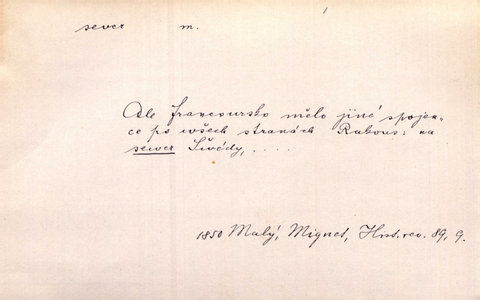 sever m.
Ale Francoursko mělo jiné spojen-
ce po wšech stranách Rakous: na
sewer Šwédy, . . . .
1850 Malý, Mignet, Hist. rev. 89, 9.